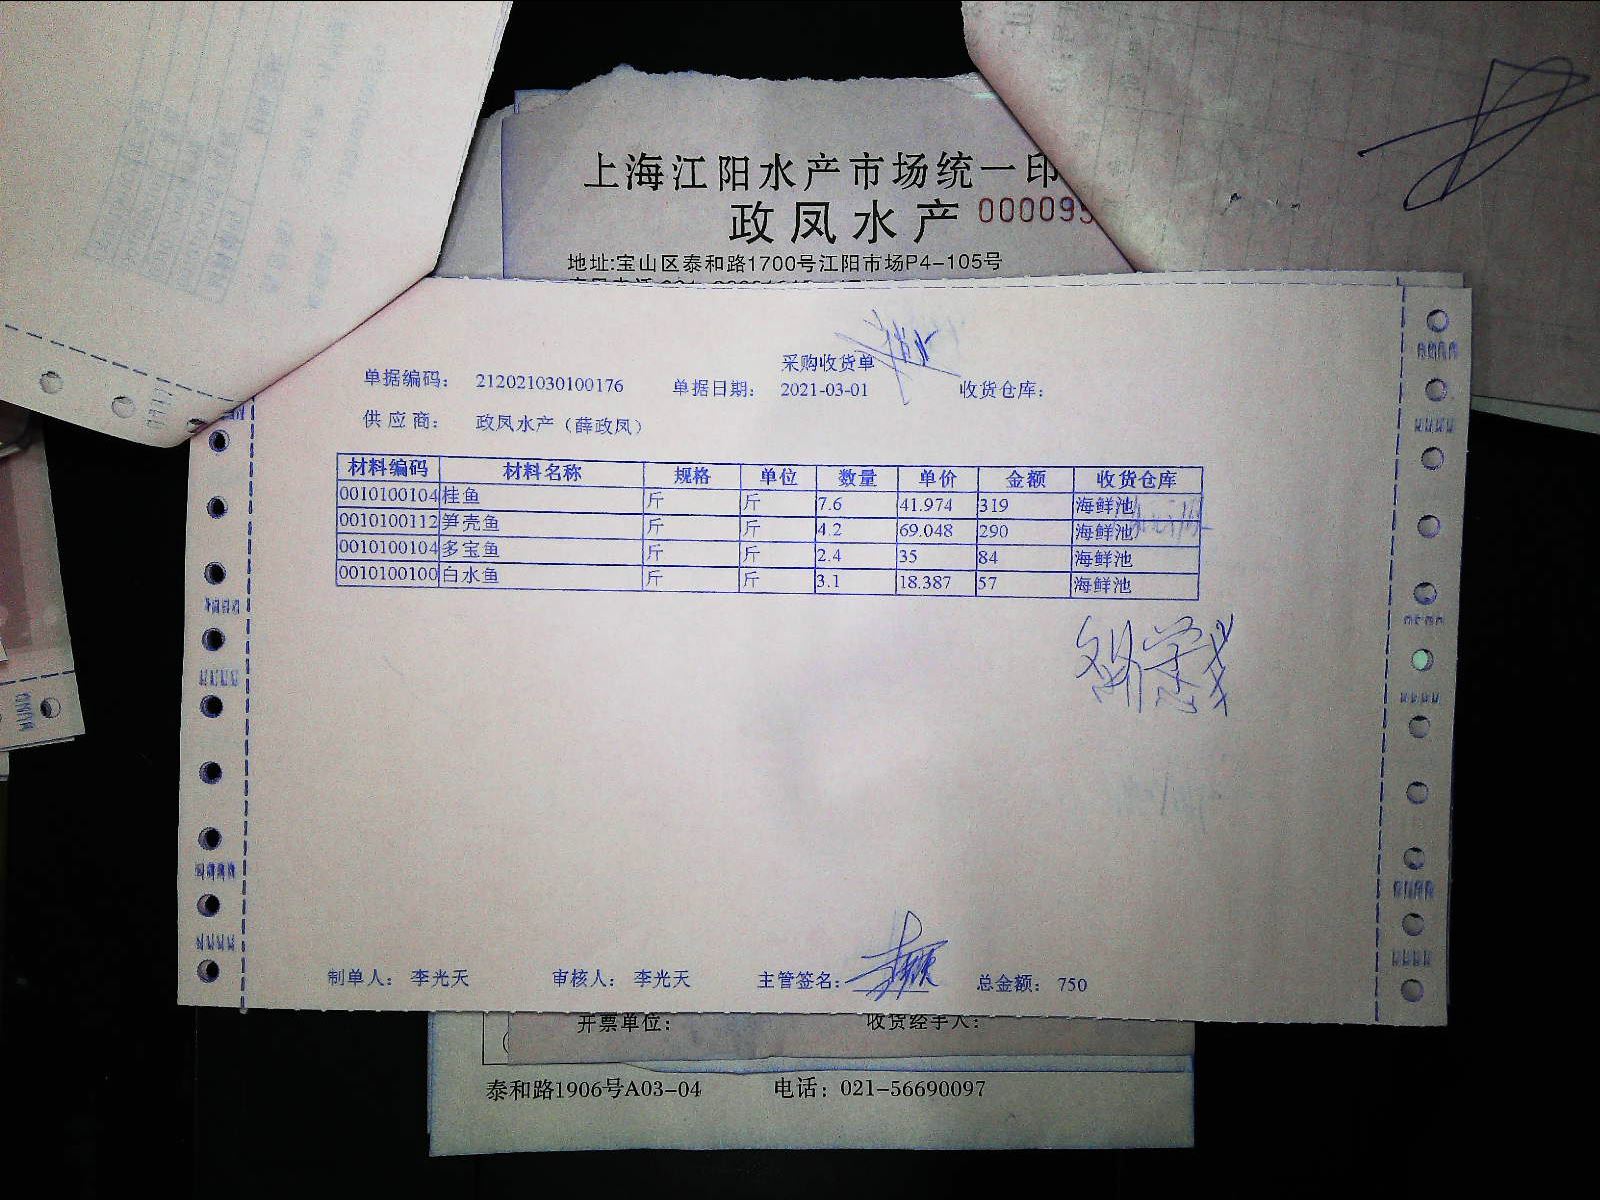 上海江阳水产市场统一印
政凤水产 000095
地址:宝山区泰和路1700号江阳市场P4-105号
采购收货单
单据编码： 212021030100176 单据日期： 2021-03-01 收货仓库：
供应商： 政凤水产（薛政凤）
材料编码 材料名称 规格 单位 数量 单价 金额 收货仓库
0010100104 桂鱼 斤 斤 7.6 41.974 319 海鲜池
0010100112 笋壳鱼 斤 斤 4.2 69.048 290 海鲜池
0010100104 多宝鱼 斤 斤 2.4 35 84 海鲜池
0010100100 白水鱼 斤 斤 3.1 18.387 57 海鲜池
制单人： 李光天 审核人： 李光天 主管签名： 总金额： 750
开票单位： 收货经手人：
泰和路1906号A03-04 电话：021-56690097